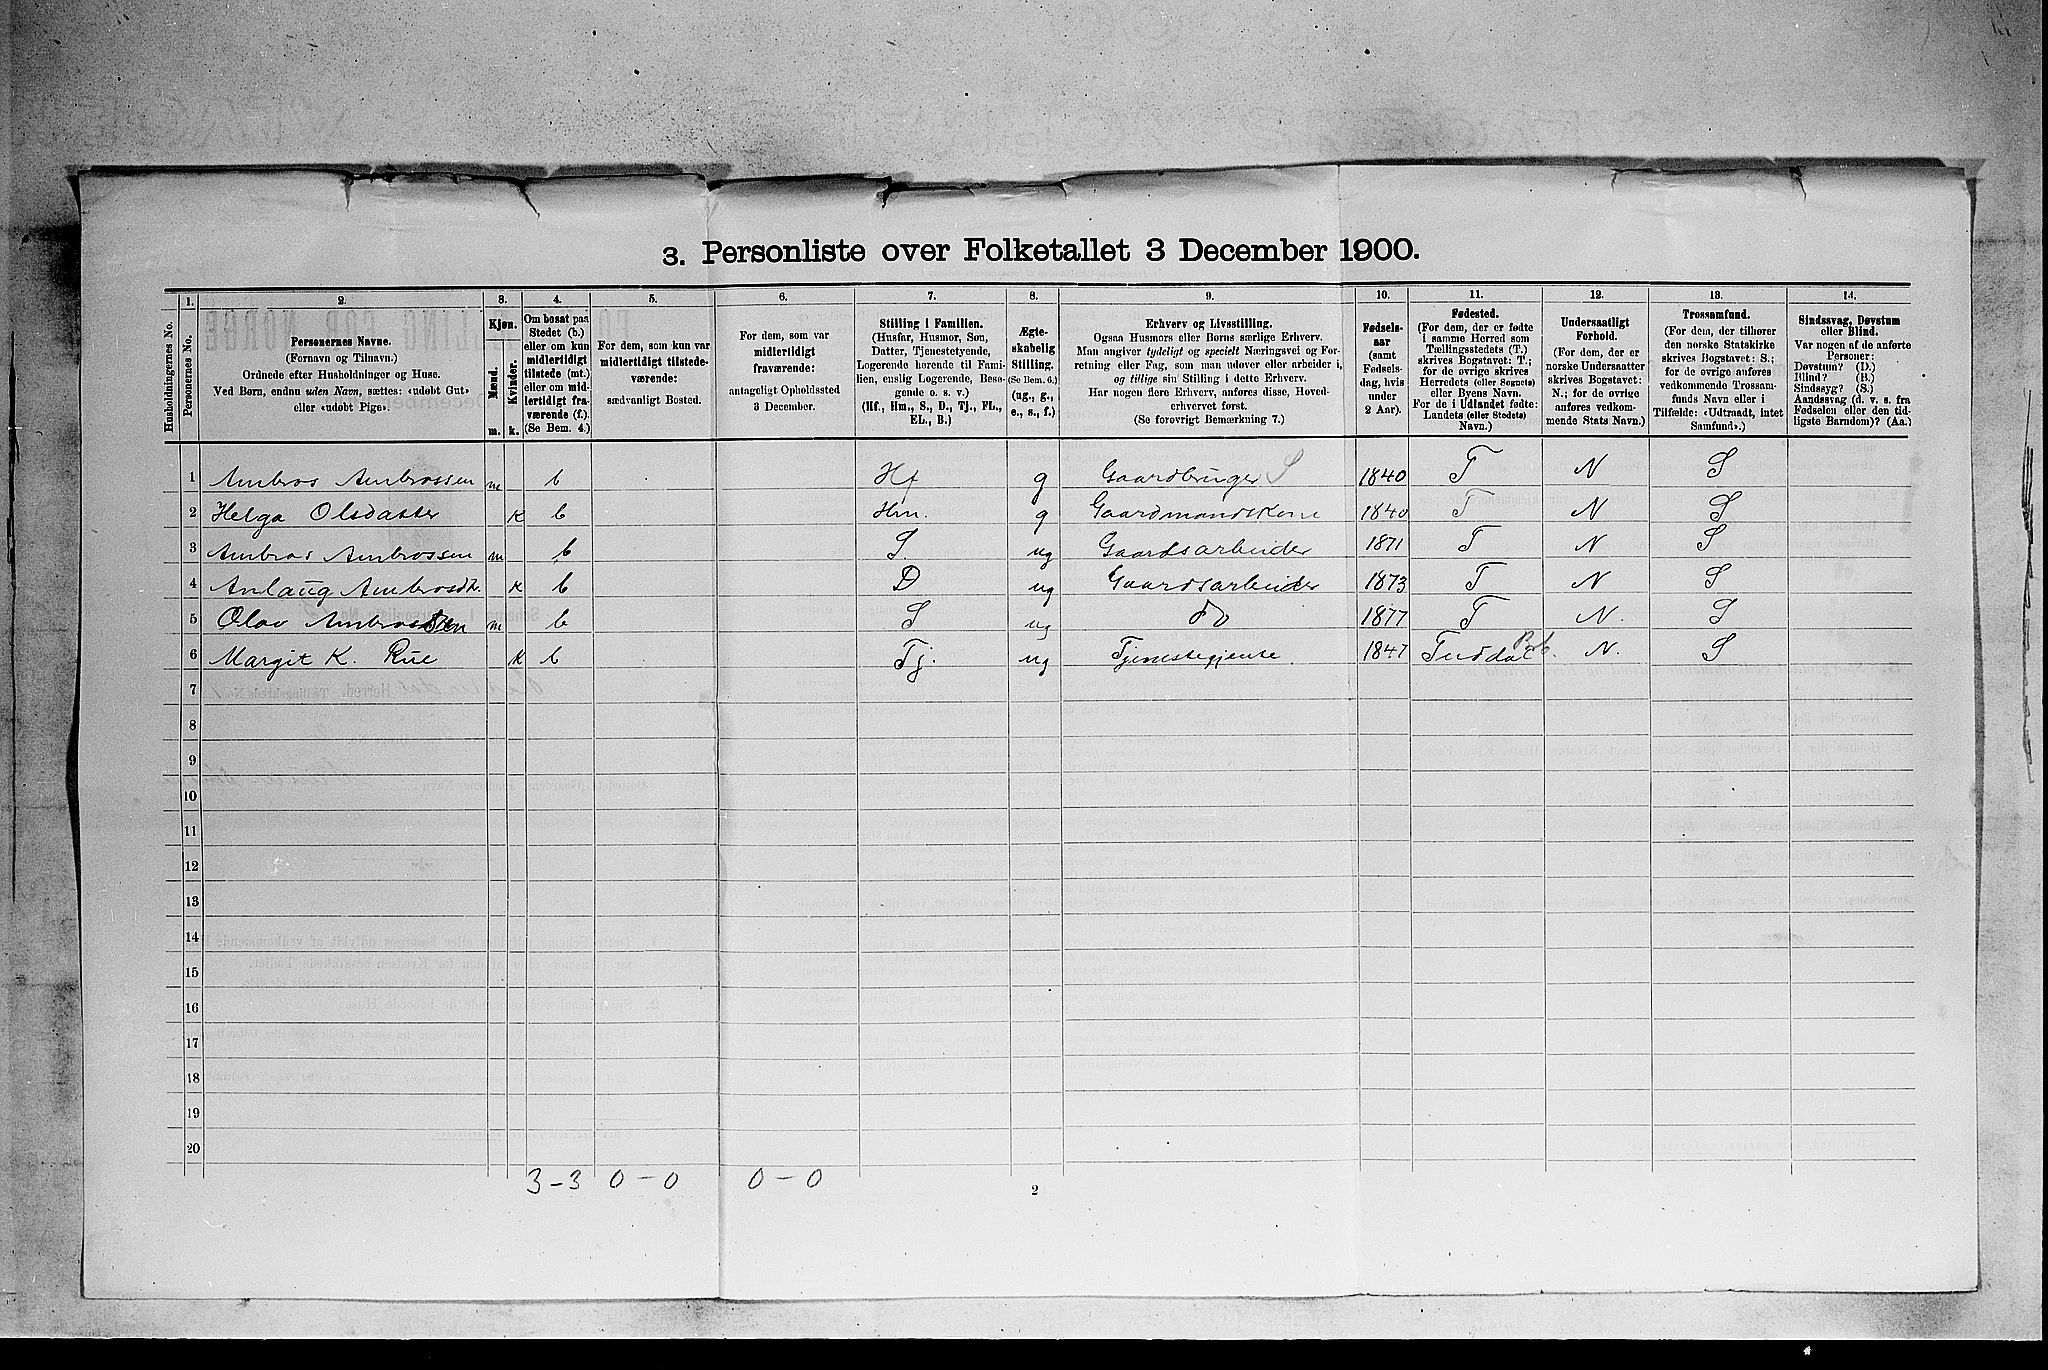 3. Personliste over Folketallet 3 December 1900.
Husholdningernes No.
1.
Personernes No.
2.
Personernes Navne.
(Fornavn og Tilnavn.)
Ordnede efter Husholdninger og Huse.
Ved Børn, endnu uden Navn, sættes: «udøbt Gut»
eller «udøbt Pige».
3.
Kjøn.
Mænd.
Kvinder.
m. k.
4.
Om bosat paa
Stedet (b.)
eller om kun
midlertidigt
tilstede (mt.)
eller om mid-
lertidigt fra-
værende (f.).
(Se Bem. 4.)
5.
For dem, som kun var
midlertidigt tilstede-
værende:
sædvanligt Bosted.
6.
For dem, som var
midlertidigt
fraværende:
antageligt Opholdssted
3 December.
7.
Stilling i Familien.
(Husfar, Husmor, Søn,
Datter, Tjenestetyende,
Logerende hørende til Fami-
lien, enslig Logerende, Besø-
gende o. s. v.)
(Hf., Hm., S., D., Tj., FL.,
EL., B.)
8.
Ægte-
skabelig
Stilling.
(Se Bem. 6.)
(ug., g.,
e., s., f.)
9.
Erhverv og Livsstilling.
Ogsaa Husmors eller Børns særlige Erhverv.
Man angiver tydeligt og specielt Næringsvei og For-
retning eller Fag, som man udøver eller arbeider i,
og tillige sin Stilling i dette Erhverv.
Har nogen flere Erhverv, anføres disse, Hoved-
erhvervet først.
(Se forøvrigt Bemærkning 7.)
10.
Fødsels-
aar
(samt
Fødsels-
dag, hvis
under
2 Aar).
11.
Fødested.
(For dem, der er fødte
i samme Herred som
Tællingsstedets (T.)
skrives Bogstavet: T.;
for de øvrige skrives
Herredets (eller Sognets)
eller Byens Navn.
For de i Udlandet fødte:
Landets (eller Stedets)
Navn.)
12.
Undersaatligt
Forhold.
(For dem, der er
norske Undersaatter
skrives Bogstavet:
N.; for de øvrige
anføres vedkom-
mende Stats Navn.)
13.
Trossamfund.
(For dem, der tilhører
den norske Statskirke
skrives Bogstavet: S.;
for de øvrige anføres
vedkommende Trossam-
funds Navn eller i
Tilfælde: «Udtraadt, intet
Samfund».)
14.
Sindssvag, Døvstum
eller Blind.
Var nogen af de anførte
Personer:
Døvstum? (D.)
Blind? (B.)
Sindssyg? (S.)
Aandssvag (d. v. s. fra
Fødselen eller den tid-
ligste Barndom)? (Aa.)
1 Ambros Ambrossen m b Hf g Gaardbruger S 1840 T N S
2 Helga Olsdatter K b Hm. g Gaardmandskone 1840 T N S
3 Ambros Ambrossen m b S. ug Gaardsarbeider 1871 T N S
4 Anlaug Ambrosdtr. K b D ug Gaardsarbeider 1873 T N S
5 Olav Ambrossen m b S ug do 1877 T N. S
6 Margit K. Rue K b Tj. ug Tjenestegjente. 1847 Tuddal N. S
7
8
9
10
11
12
13
14
15
16
17
18
19
20
3-3 0-0 0-0
2